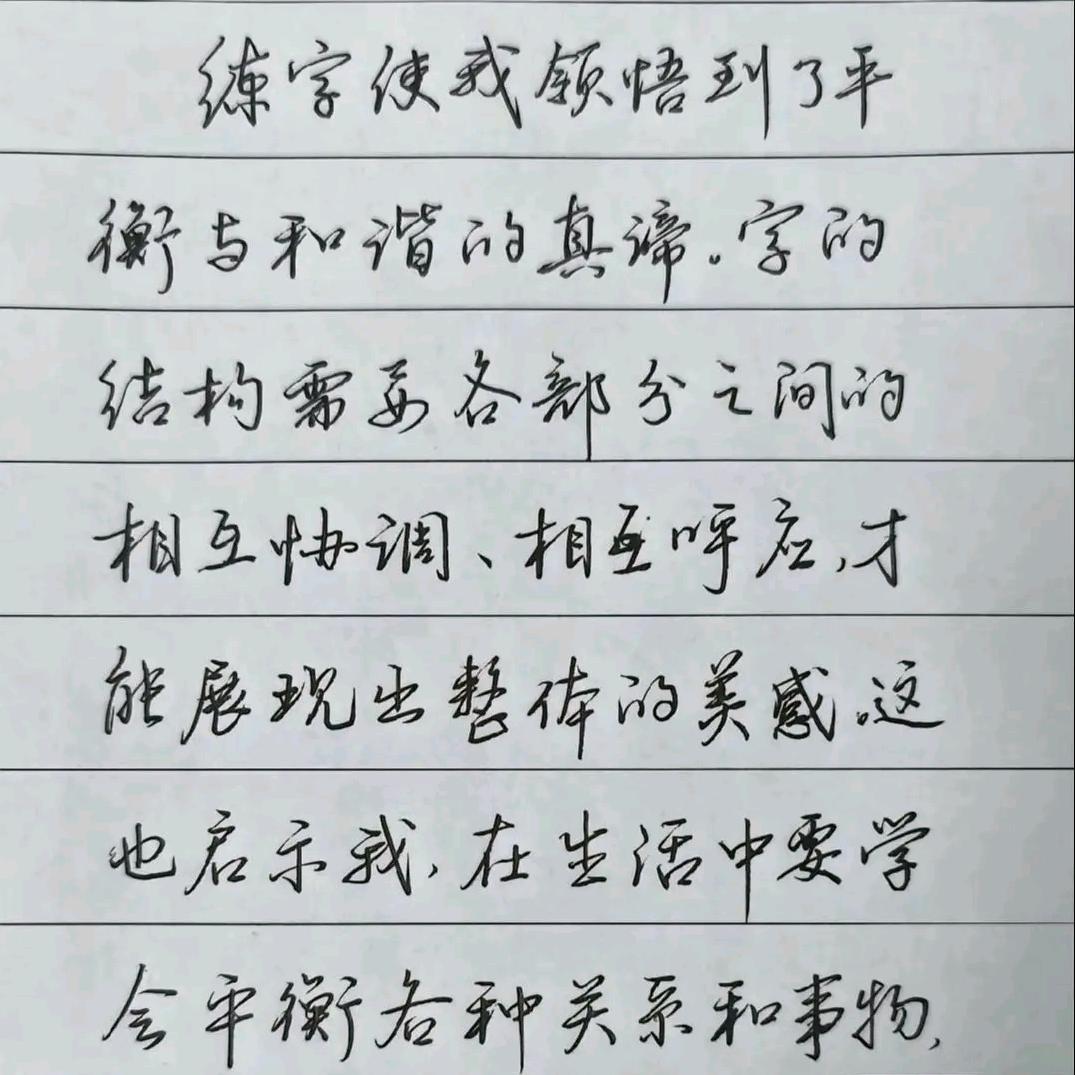 练字使我领悟到了平
衡与和谐的真谛。字的
结构需要各部分之间的
相互协调、相互呼应,才
能展现出整体的美感。这
也启示我,在生活中要学
会平衡各种关系和事物,